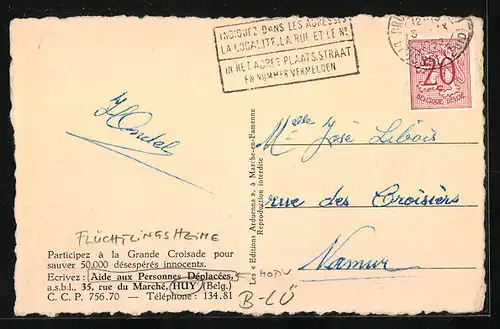 INDIQUEZ DANS LES ADRESSES
LA LOCALITE, LA RUE ET LE No
IN HET ADRES PLAATS, STRAAT
EN NUMMER VERMELDEN
20
BELGIQUE-BELGIE
Melle José
rue des Croisiers
Namur
Les « Editions Ardenna », à Marche-en-Famenne
Reproduction interdite
FLÜCHTLINGSHEIME
Participez à la Grande Croisade pour
sauver 50.000 désespérés innocents.
Ecrivez : Aide aux Personnes Déplacées,
a.s.b.l., 35, rue du Marché, HUY (Belg.)
C. C. P. 756.70 — Téléphone : 134.81
B-LÜ